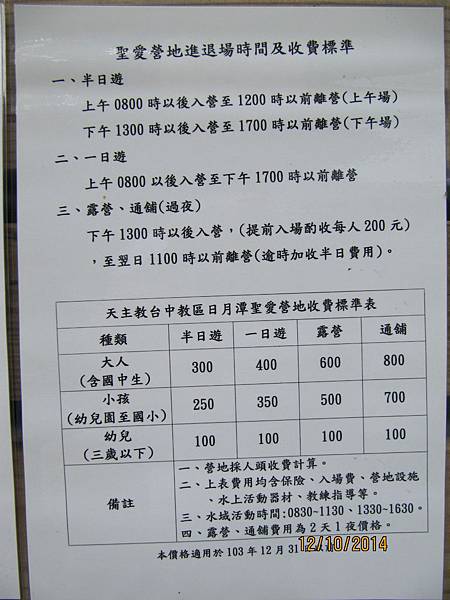 聖愛營地進退場時間及收費標準
一、半日遊
上午 0800 時以後入營至 1200 時以前離營(上午場)
下午 1300 時以後入營至 1700 時以前離營(下午場)
二、一日遊
上午 0800 以後入營至下午 1700 時以前離營
三、露營、通舖(過夜)
下午 1300 時以後入營，(提前入場酌收每人 200 元)
，至翌日 1100 時以前離營(逾時加收半日費用)。
天主教台中教區日月潭聖愛營地收費標準表
種類 半日遊 一日遊 露營 通舖
大人
(含國中生) 300 400 600 800
小孩
(幼兒園至國小) 250 350 500 700
幼兒
(三歲以下) 100 100 100 100
備註
一、營地採人頭收費計算。
二、上表費用均含保險、入場費、營地設施
、水上活動器材、教練指導等。
三、水域活動時間:0830~1130、1330~1630。
四、露營、通舖費用為 2 天 1 夜價格。
本價格適用於 103 年 12 月 31
12/10/2014